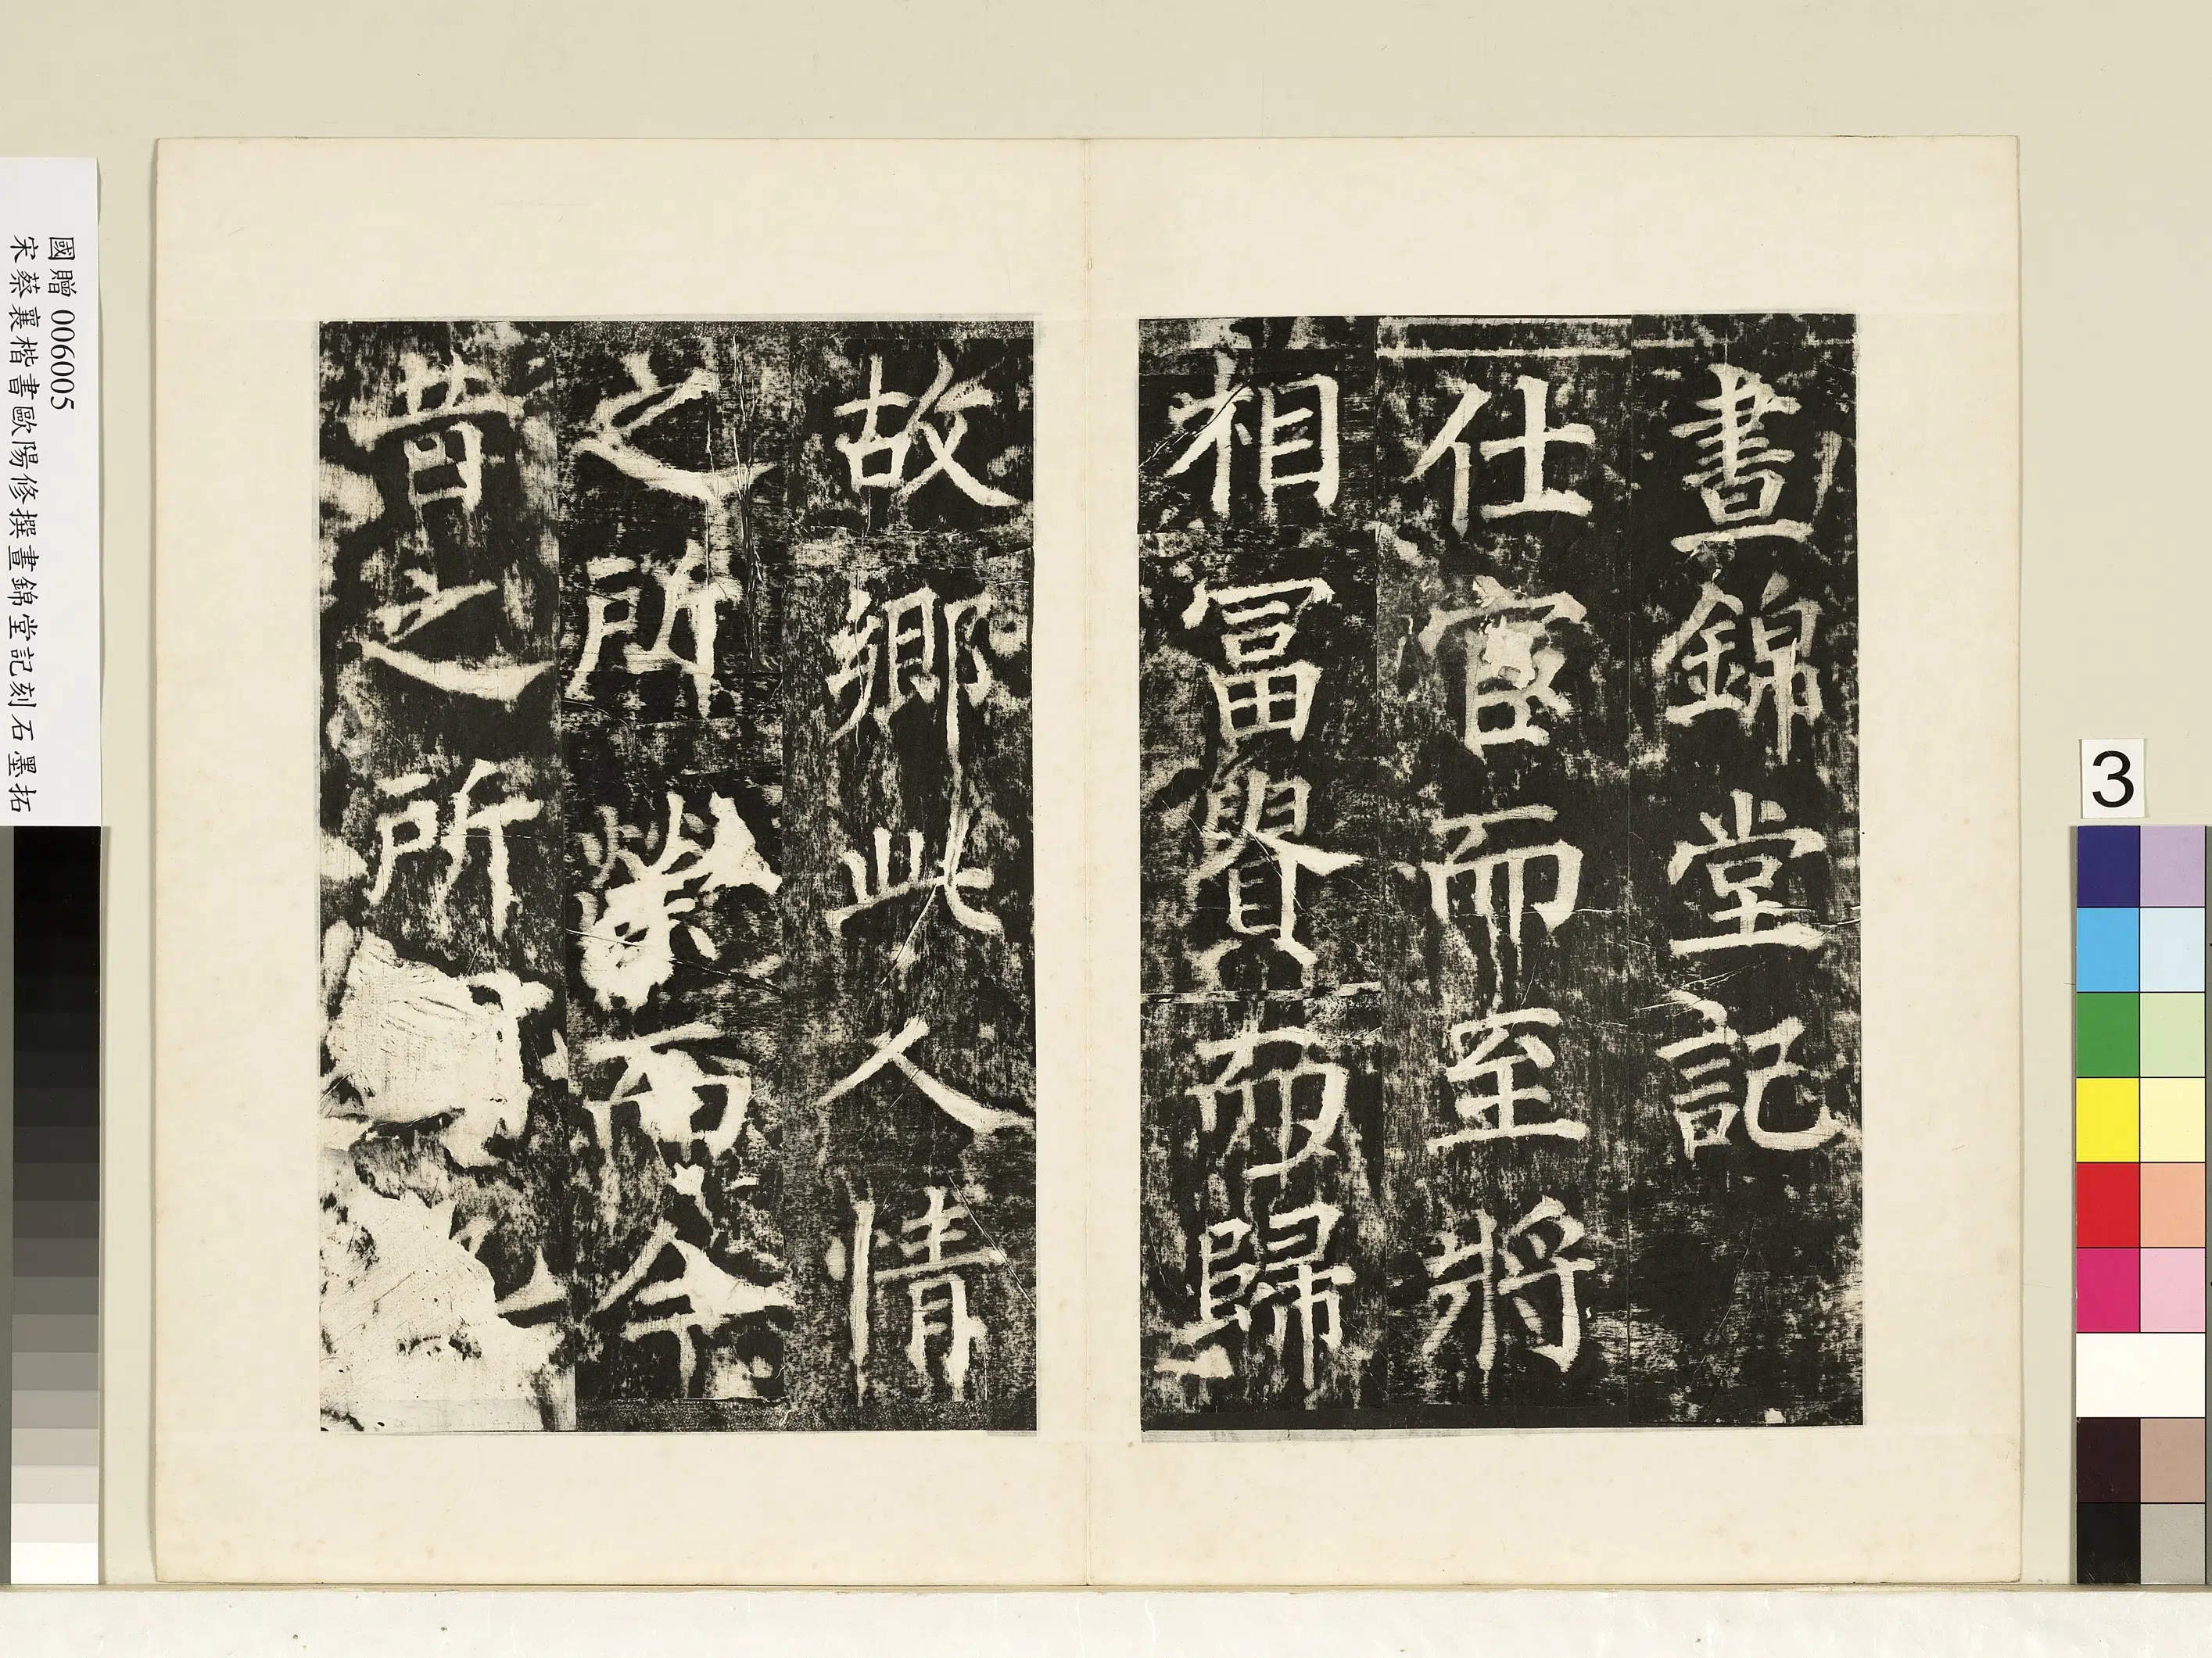 晝錦堂記
仕宦而至將
相冨貴而歸
故鄉此人情
之所榮而今
昔之所
國贈 006005
宋蔡襄楷書歐陽修撰晝錦堂記刻石墨拓
3